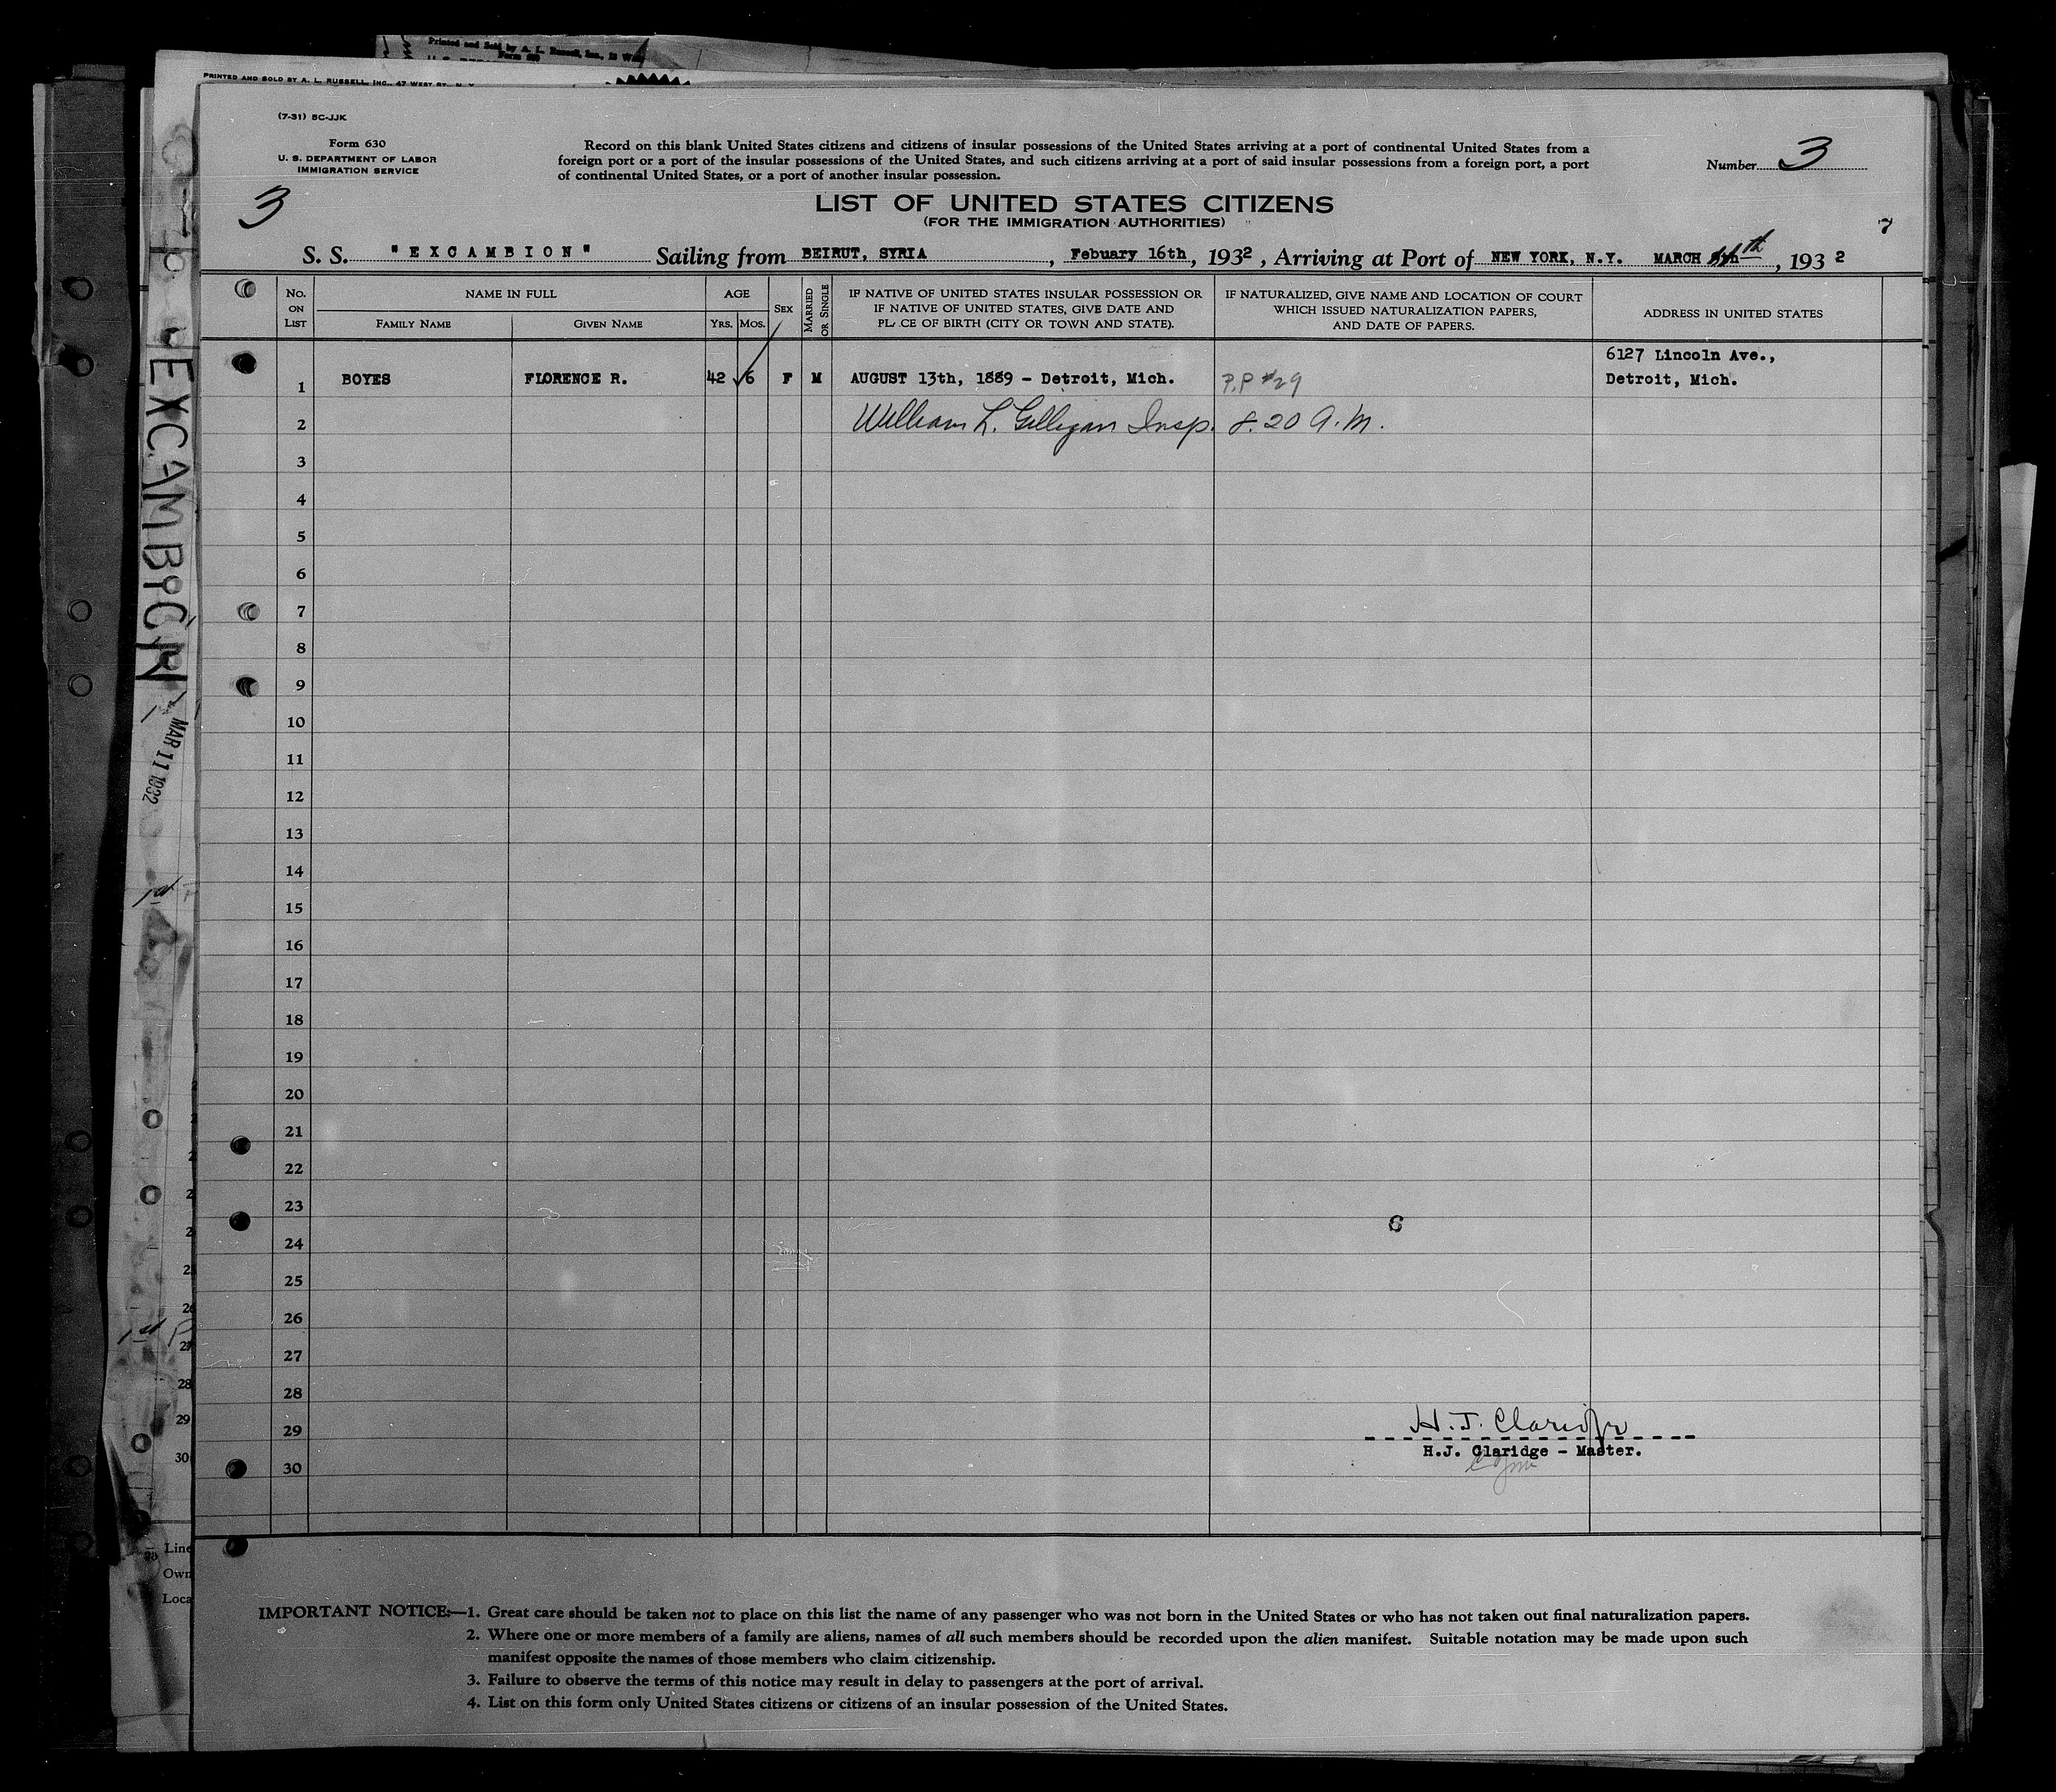 Printed and Sold by A. L. Russell, Inc.,
Form 630
PRINTED AND SOLD BY A. L. RUSSELL, INC., 47 WEST ST., N. Y.
(7-31) 5C-JJK
Form 630
U. S. DEPARTMENT OF LABOR
IMMIGRATION SERVICE
Record on this blank United States citizens and citizens of insular possessions of the United States arriving at a port of continental United States from a
foreign port or a port of the insular possessions of the United States, and such citizens arriving at a port of said insular possessions from a foreign port, a port
of continental United States, or a port of another insular possession.
Number 3
3
LIST OF UNITED STATES CITIZENS
(FOR THE IMMIGRATION AUTHORITIES)
7
S. S. "EXCAMBION" Sailing from BEIRUT, SYRIA, Febuary 16th, 1932, Arriving at Port of NEW YORK, N.Y. MARCH th, 1932
No. ON LIST
NAME IN FULL
FAMILY NAME
GIVEN NAME
AGE
YRS.
MOS.
SEX
MARRIED OR SINGLE
IF NATIVE OF UNITED STATES INSULAR POSSESSION OR
IF NATIVE OF UNITED STATES, GIVE DATE AND
PL CE OF BIRTH (CITY OR TOWN AND STATE).
IF NATURALIZED, GIVE NAME AND LOCATION OF COURT
WHICH ISSUED NATURALIZATION PAPERS,
AND DATE OF PAPERS.
ADDRESS IN UNITED STATES
6127 Lincoln Ave.,
1 BOYES FLORENCE R. 42 6 F M AUGUST 13th, 1889 - Detroit, Mich. P.P #29 Detroit, Mich.
2 William L. Gilligan Insp. 8.20 A.M.
3
4
5
6
7
8
9
10
11
12
13
14
15
16
17
18
19
20
21
22
23
6
24
25
26
27
28
29 H. J. Claridge
H.J. Claridge - Master.
30
EXCAMBION
MAR 11 1932
1st
1st
26
27
28
29
30
Line
Own
Loca
IMPORTANT NOTICE:—1. Great care should be taken not to place on this list the name of any passenger who was not born in the United States or who has not taken out final naturalization papers.
2. Where one or more members of a family are aliens, names of all such members should be recorded upon the alien manifest. Suitable notation may be made upon such
manifest opposite the names of those members who claim citizenship.
3. Failure to observe the terms of this notice may result in delay to passengers at the port of arrival.
4. List on this form only United States citizens or citizens of an insular possession of the United States.